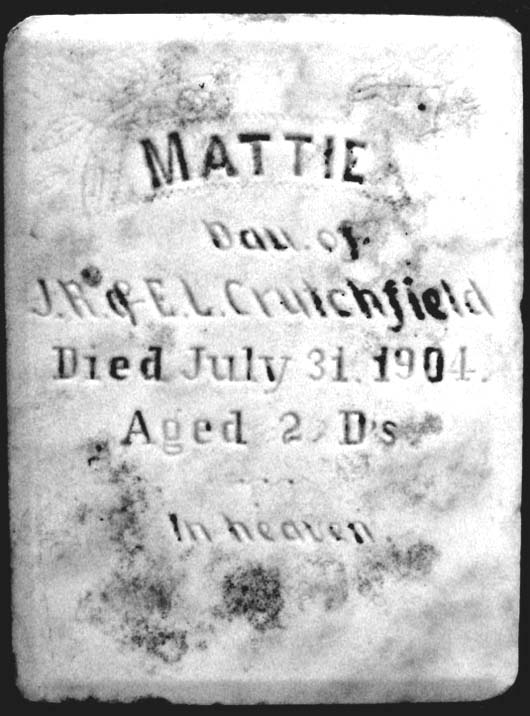 MATTIE
Dau. of
J.R. & E.L. Crutchfield
Died July 31. 1904.
Aged 2 D's
In heaven.